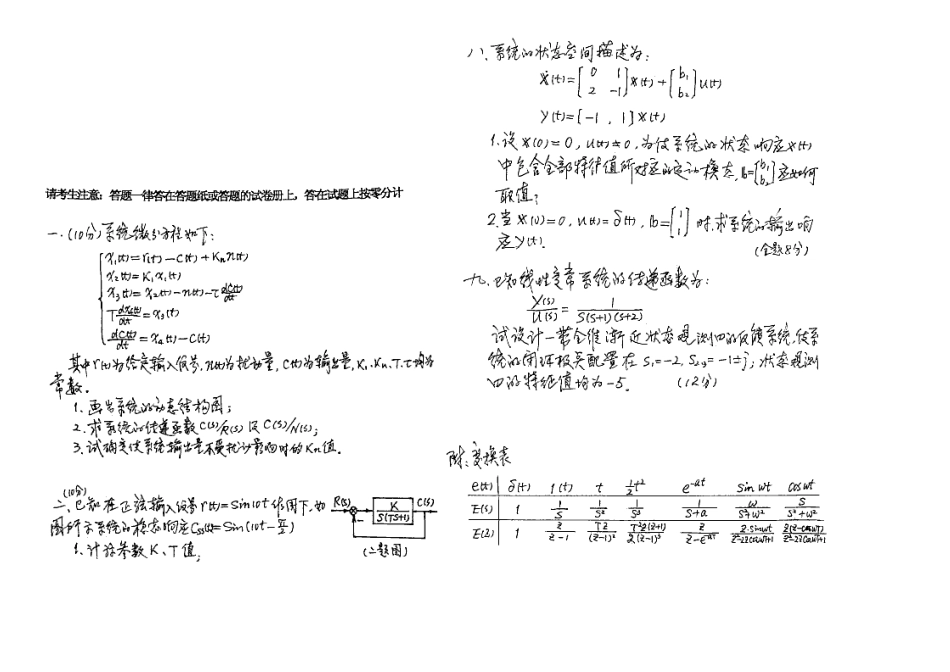 请考生注意：答题一律答在答题纸或答题的试卷册上，答在试题上按零分计
一、(10分)系统微分方程如下：
x₁(t)=r(t)-c(t)+Kₙn(t)
x₂(t)=K₁x₁(t)
x₃(t)=x₂(t)-n(t)-τ dc(t)/dt
T dx₄(t)/dt=x₃(t)
dc(t)/dt=x₄(t)-c(t)
其中r(t)为给定输入信号，n(t)为扰动量，C(t)为输出量，K₁、Kₙ、T、τ均为
常数。
1、画出系统的动态结构图；
2、求系统的传递函数C(s)/R(s)及C(s)/N(s)；
3、试确定使系统输出量不受扰动影响时的Kₙ值。
(10分)
二、已知在正弦输入信号r(t)=Sin10t作用下，如
图所示系统的稳态响应Css(t)=Sin(10t-π/2)
1、计算参数K、T值；
R(s) K/S(TS+1) C(s)
(二题图)
八、系统的状态空间描述为：
ẋ(t)=[0 1; 2 -1]x(t)+[b₁; b₂]u(t)
y(t)=[-1, 1]x(t)
1、设x(0)=0，u(t)≠0，为使系统的状态响应x(t)
中包含全部特征值所对应的运动模态，b=[b₁; b₂]应如何
取值？
2、当x(0)=0，u(t)=δ(t)，b=[1; 1]时，求系统的输出响
应y(t)。 (全题8分)
九、已知线性定常系统的传递函数为：
Y(s)/U(s)=1/S(S+1)(S+2)
试设计一带全维渐近状态观测器的反馈系统，使系
统的闭环极点配置在S₁=-2，S₂,₃=-1±j；状态观测
器的特征值均为-5。 (12分)
附：变换表
e(t) δ(t) 1(t) t ½t² e^-at Sin wt cos wt
E(s) 1 1/S 1/S² 1/S³ 1/(S+a) ω/(S²+ω²) S/(S²+ω²)
E(z) 1 z/(z-1) Tz/(z-1)² T²z(z+1)/2(z-1)³ z/(z-e^-aT) z·sinωT/(z²-2zcosωT+1) z(z-cosωT)/(z²-2zcosωT+1)